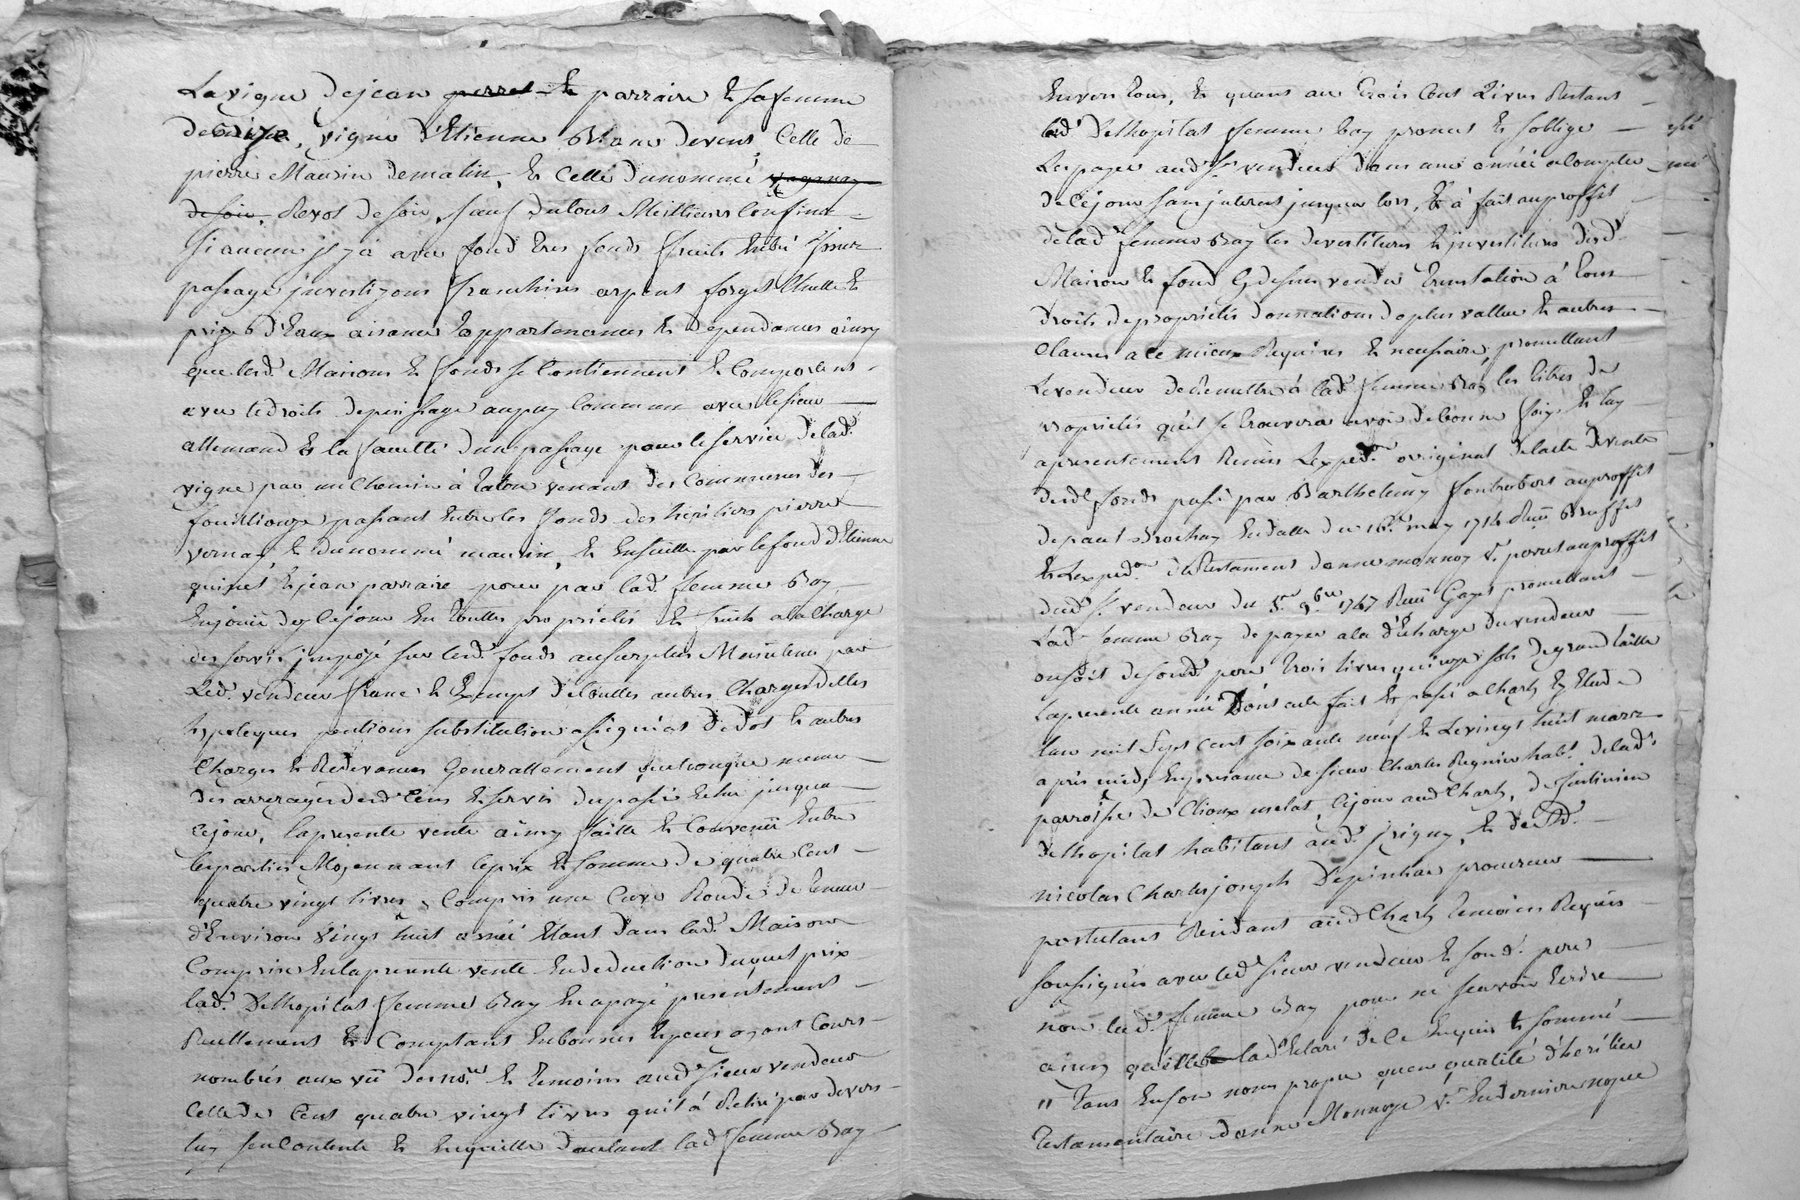 La vigne de jean perret et parraire et sa femme
de bize, vigne d'Etienne Blanc de vent, Celle de
pierre Maurin de matin, et Celle du nommé
de soir, Revol de soir, sauf du tout Meilleurs Confins
si aucun il y à avec fond tres fonds fruits
passage investizons franchises arpent forget Chutte et
prize d'Eaux aisance et appartenances et dependances ainsy
que lesd. Maisons et fonds se Contiennent et Comportent
avec le droits de puissage au puy Commun avec le sieur
allemand et la faculté d'un passage pour le service de lad.
vigne par un Chemin à talon venant des Communes des
passant Entre les fonds des heritiers pierre
vernay et du nommé maurin, et Ensuitte par le fond d'Etienne
quinet et jean parraire pour par lad. femme Bay
En jouir dez Cejour En toutte proprietés et fruits a la Charge
des servis imposé sur lesd. fonds au surplus Maintenu par
Led. vendeur franc et Exempt de touttes autres Charges dettes
hypoteques pentions substitution assignat de dot et autres
Charges et Redevances Generallement quelconque meme
des arrerages desd. Cens et servis du passé Echu jusqua
Cejour, La presente vente ainsy faitte et Convenüe Entre
les parties Moyennant le prix et somme de quatre Cent
quatre vingt livres, Compris une Cuve Ronde de teneur
d'Environ Vingt huit asnée Etant dans lad. Maison
Comprise En la presente vente En deduction duquel prix
lad. Delhopital femme Bay En a payé presentement
Reellement et Comptant En bonnes Especes ayant Cours
nombrés aux vü des no.re et temoins aud. sieur vendeur
Celle de Cent quatre vingt livres qu'il à Retiré par devers
luy s'en Contente et En quitte d'autant lad. femme Bay
Envers tous, Et quant aux trois Cent Livres Restant
lad. Delhopital femme bay promet et s'oblige
Les payer aud. Sr. vendeur dans une année a Compter
de Cejour sans interest jusqua lors, Et à fait au proffit
de lad. femme Bay les devestitures et investitures desd.
Maison et fond Cy dessus vendu transtation à tous
droits de proprietés donnations de plus vallue et autres
Clauses a ce mieux Requises et necessaire, promettant
Le vendeur de Remettre à lad. femme Bay les titres de
proprietés qu'il se trouvera avoir de bonne foix Et luy
a presentement Remis L'exped.on original de l'acte de vente
desd. fonds passé par Barthelemy au proffit
de paul Brochay En datte du 16.e may 1714 Reçü Bruffet
Et L'exped.on du testament d'anne monnoy v.e perret au proffit
dud. Sr. vendeur du 5.e 9.bre 1767 Reçü Gayet promettant
Lad. femme Bay de payer a la d'Echarge du vendeur
ou soit de sond. pere trois livres quinze sols de grand taille
La presente année Dont acte fait et passé a Charly En Etude
L'an mil Sept Cent soixante neuf Et Le vingt huit mars
apres midy En presence de sieur Charles Regnier hab.t de lad.
parroisse de Clioux uselat, Cejour aud. Charly, de
Delhopital habitant aud. jrigny, Et de Sr.
nicolas Charles joseph D'epinhac procureur
postulant Residant aud. Charly temoins Requis
soussignés avec led. sieur vendeur Et sond. pere
non lad. femme Bay pour ne sçavoir Ecrire
ainsy qu'elle la d'Eclaré de Ce Enquise et sommé
" Tant En son nom propre qu'en qualité d'heritier
testamentaire d'anne Monnoye v.e En derniere nopce